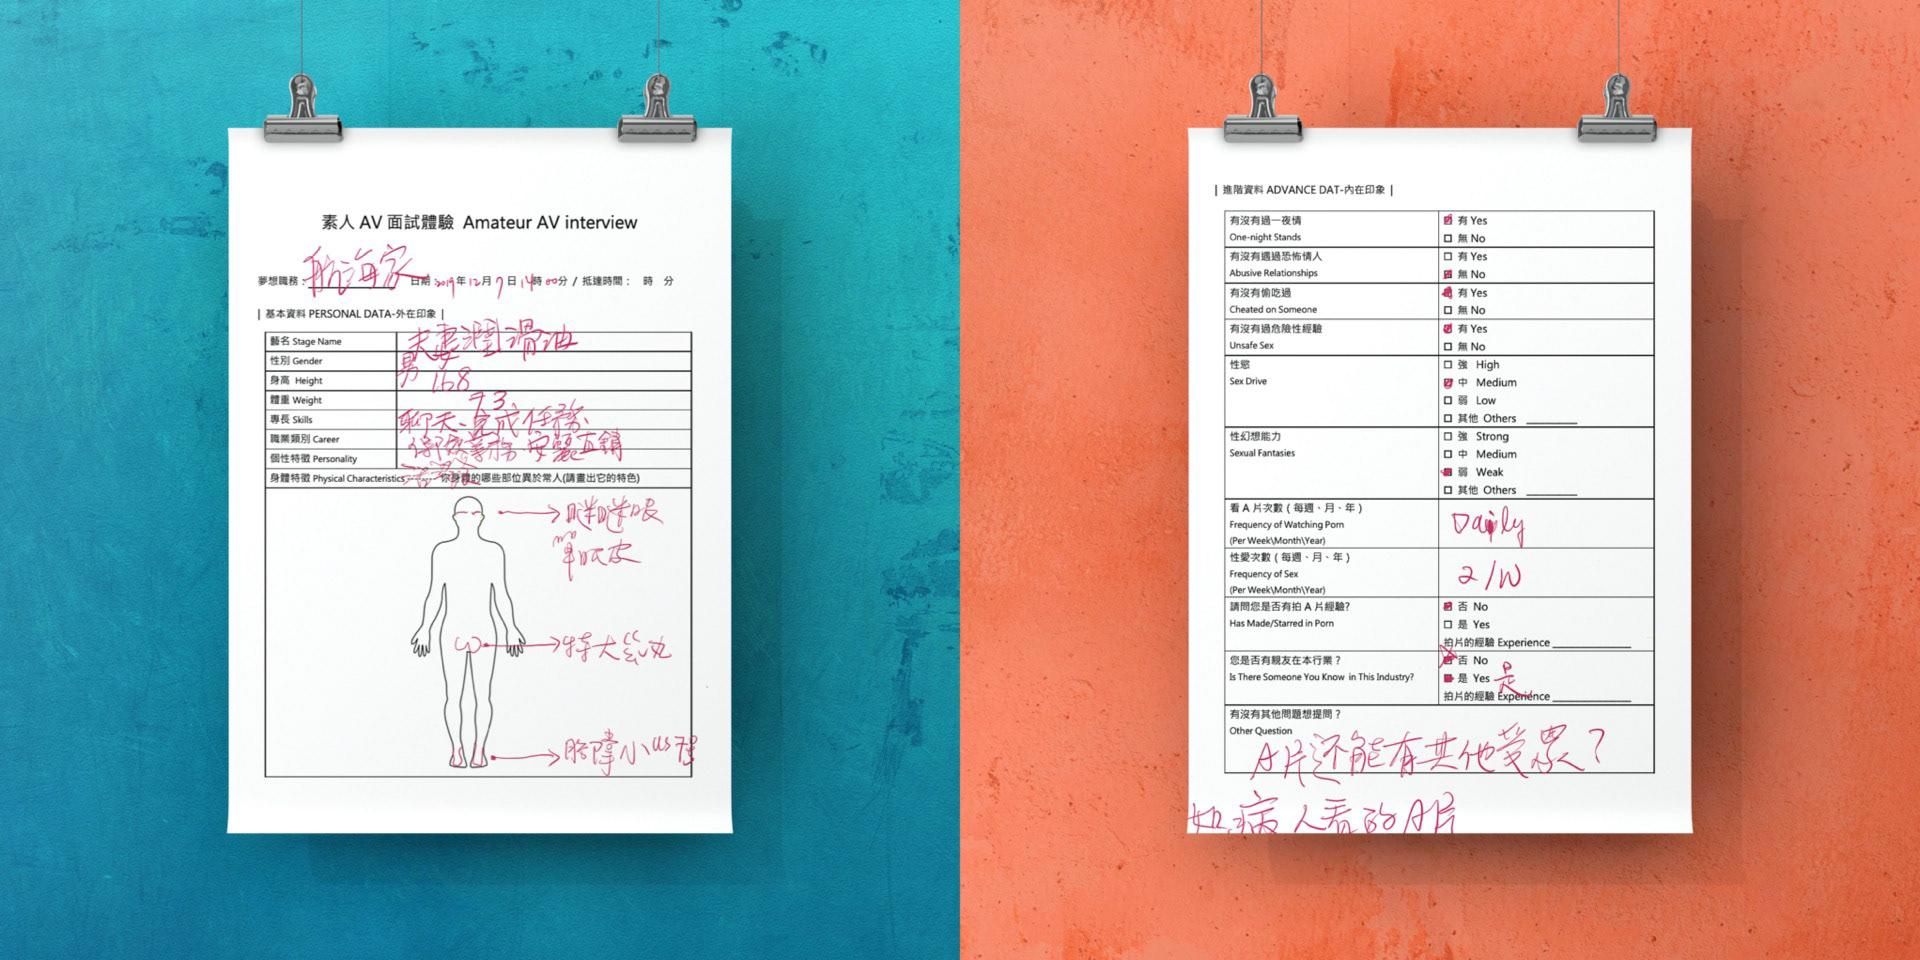 素人 AV 面試體驗 Amateur AV interview
夢想職務：航海家 日期：2019年12月7日14時00分 / 抵達時間： 時 分
| 基本資料 PERSONAL DATA-外在印象 |
藝名 Stage Name 夫妻潤滑油
性別 Gender 男
身高 Height 168
體重 Weight 73
專長 Skills 聊天、完成任務、
職業類別 Career 安麗直銷
個性特徵 Personality
身體特徵 Physical Characteristics 你身體的哪些部位異於常人(請畫出它的特色)
瞇瞇眼
單眼皮
特大
小
| 進階資料 ADVANCE DAT-內在印象 |
有沒有過一夜情 有 Yes
One-night Stands 無 No
有沒有遇過恐怖情人 有 Yes
Abusive Relationships 無 No
有沒有偷吃過 有 Yes
Cheated on Someone 無 No
有沒有過危險性經驗 有 Yes
Unsafe Sex 無 No
性慾 強 High
Sex Drive 中 Medium
弱 Low
其他 Others
性幻想能力 強 Strong
Sexual Fantasies 中 Medium
弱 Weak
其他 Others
看 A 片次數 ( 每週、月、年 )
Frequency of Watching Porn Daily
(Per Week\Month\Year)
性愛次數 ( 每週、月、年 )
Frequency of Sex 2/W
(Per Week\Month\Year)
請問您是否有拍 A 片經驗? 否 No
Has Made/Starred in Porn 是 Yes
拍片的經驗 Experience
您是否有親友在本行業？ 否 No
Is There Someone You Know in This Industry? 是 Yes 是
拍片的經驗 Experience
有沒有其他問題想提問？
Other Question
A片还能有其他
如病人看的A片